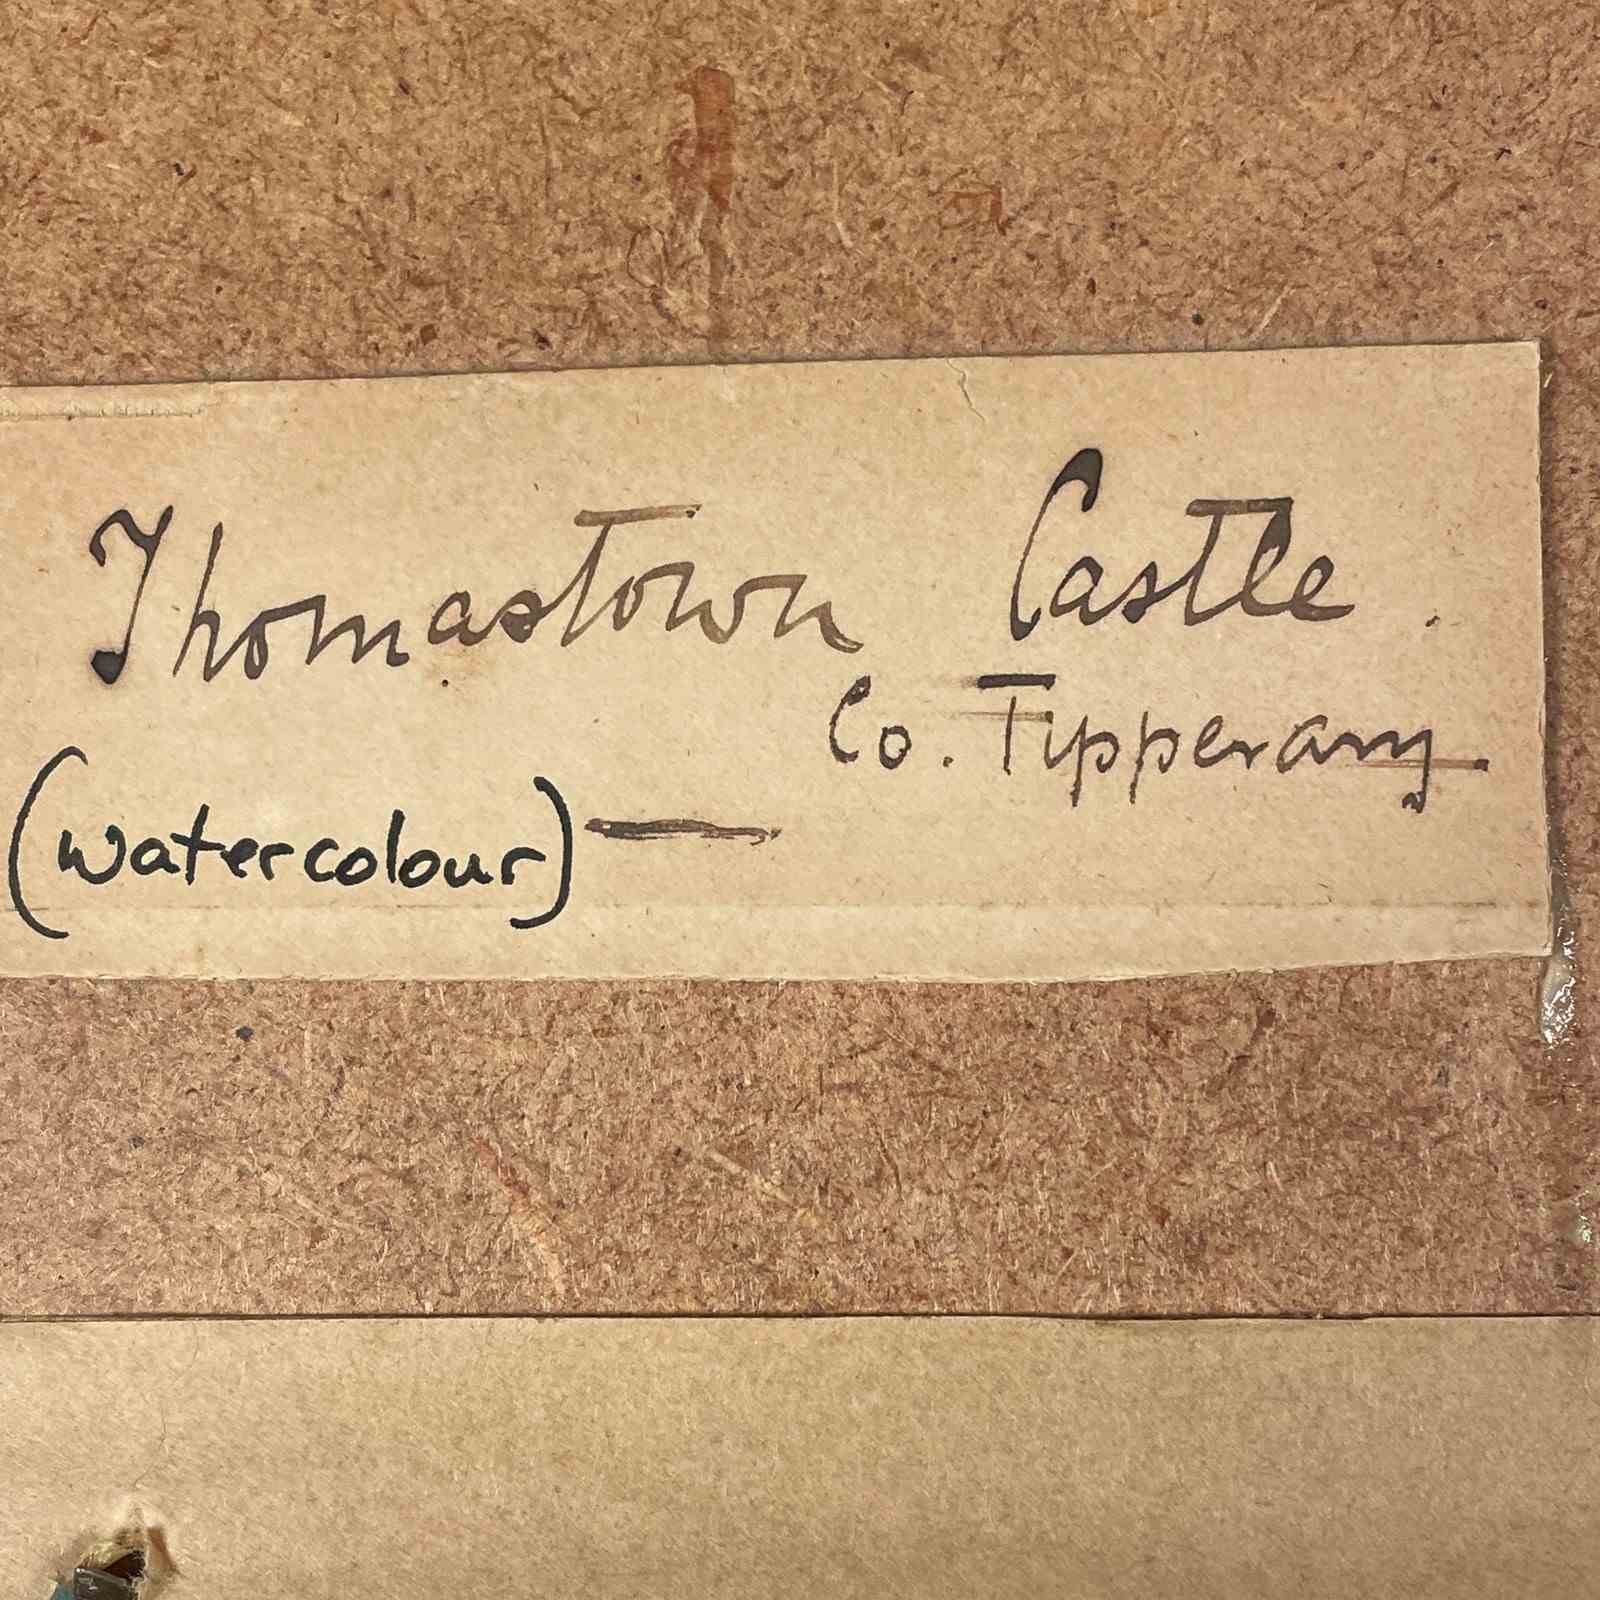 Thomastown Castle.
Co. Tipperary
(watercolour) —